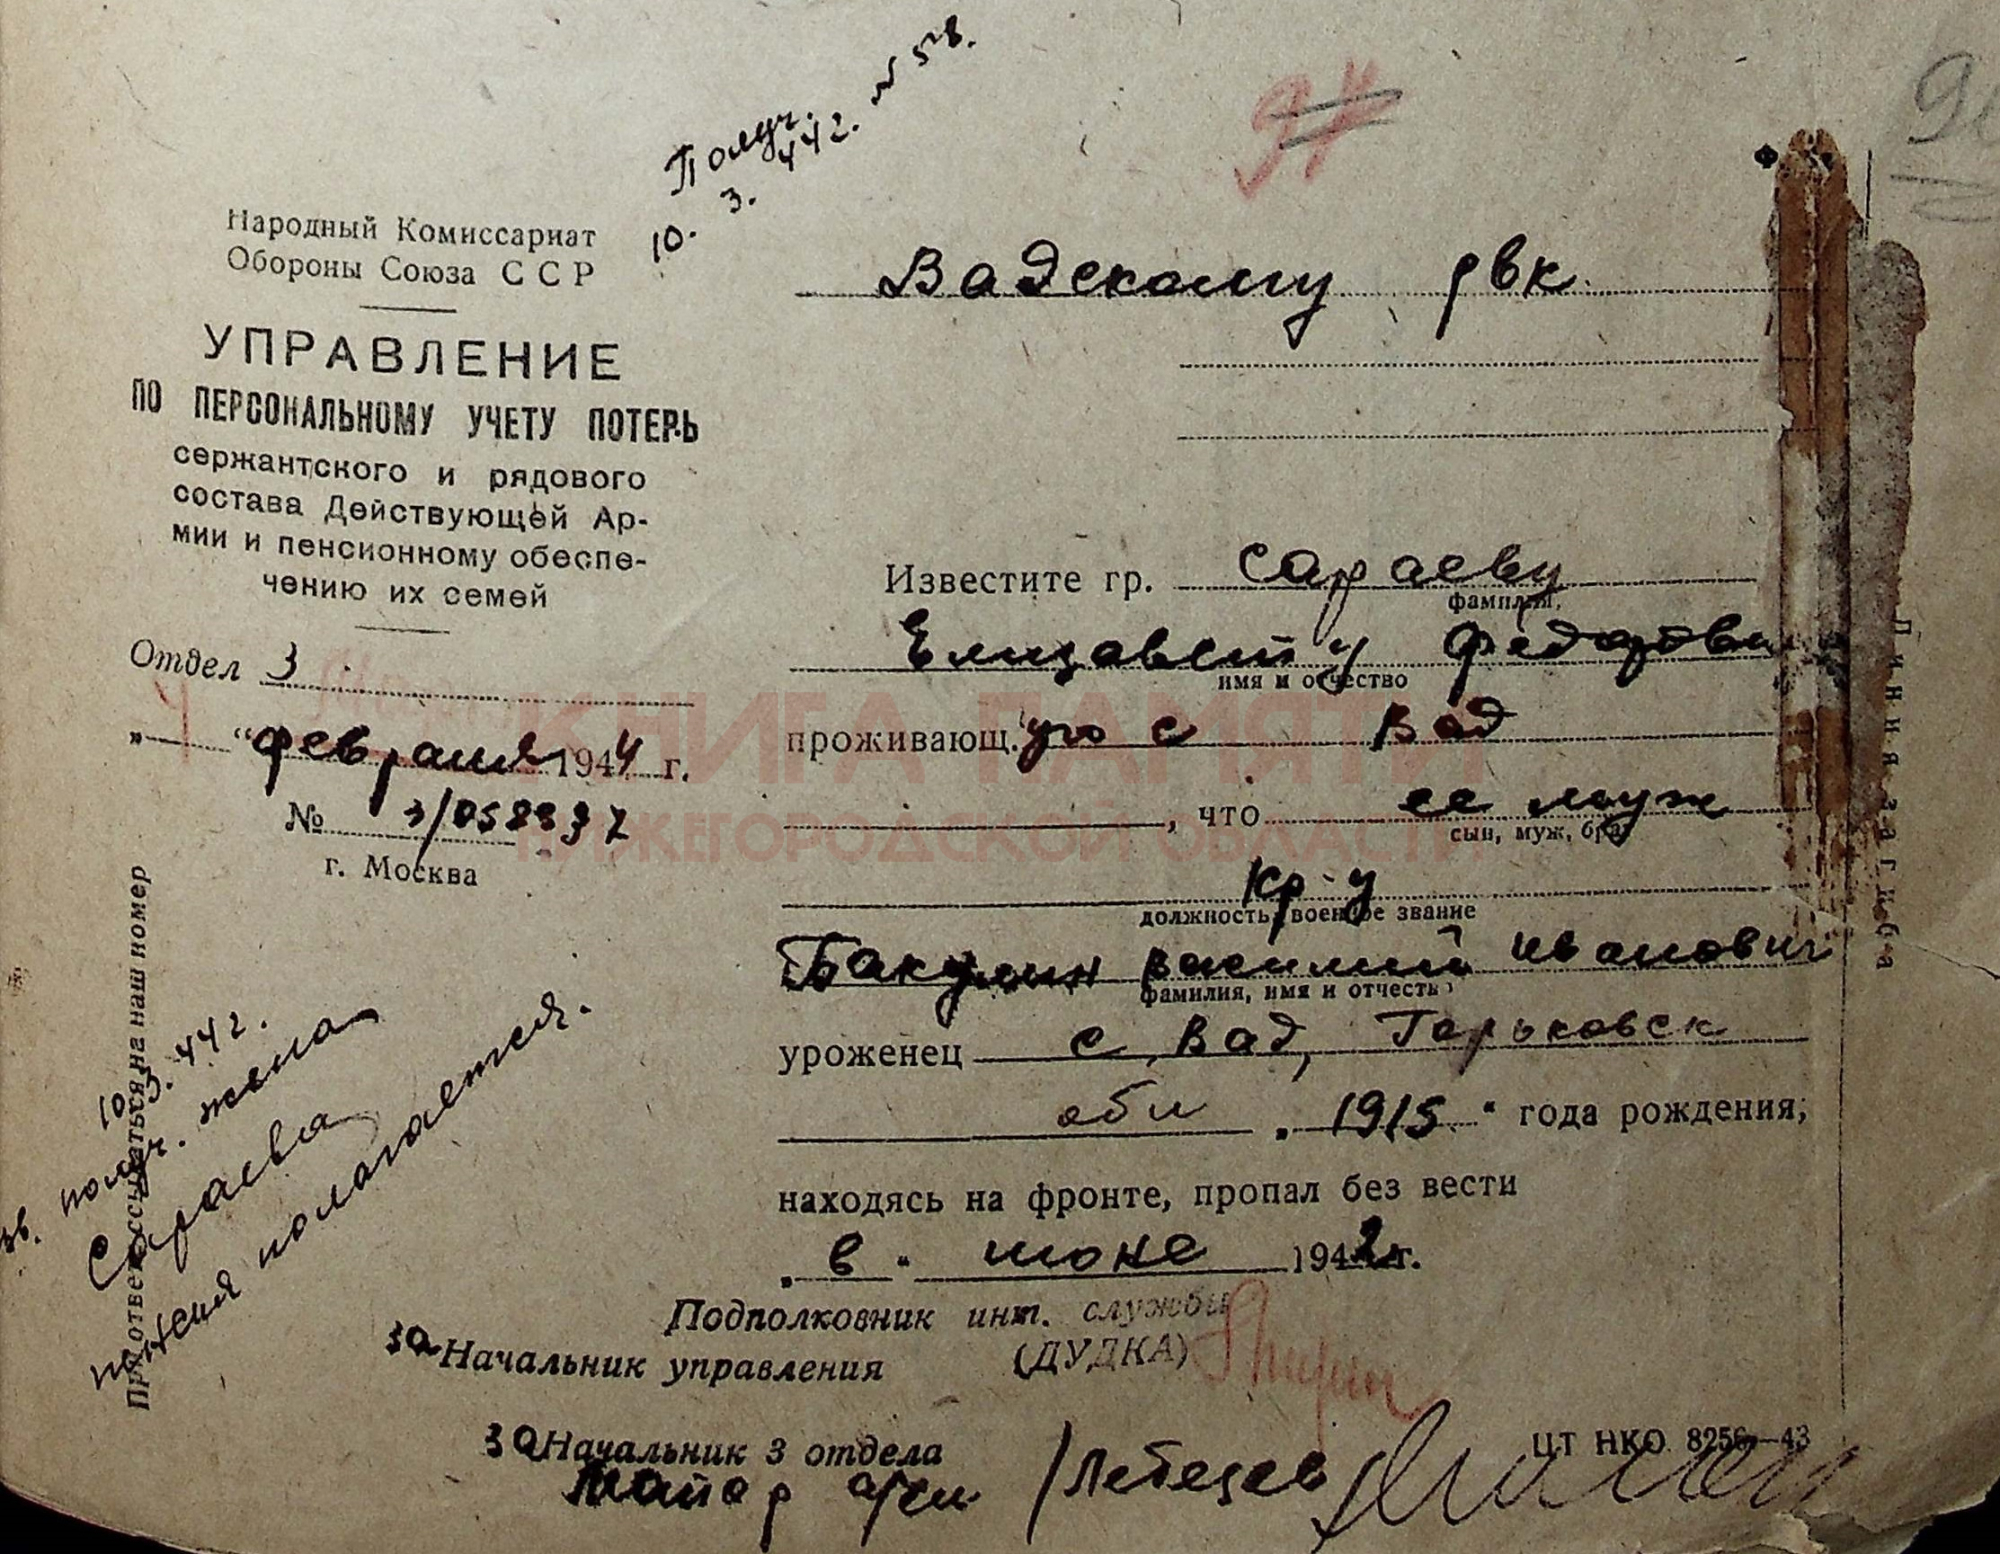 Получ.
10. 3. 44 г. № 58.
94
Народный Комиссариат
Обороны Союза ССР
УПРАВЛЕНИЕ
ПО ПЕРСОНАЛЬНОМУ УЧЕТУ ПОТЕРЬ
сержантского и рядового
состава Действующей Ар-
мии и пенсионному обеспе-
чению их семей
Отдел 3
„ “ февраля 1944 г.
№ 3/058937
г. Москва
При ответе ссылаться на наш номер
10. 3. 44 г.
зв. получ. жена
Сараева
пенсия полагается.
Вадскому рвк
Известите гр. Сараеву
фамилия,
Елизавету Федоровн
имя и отчество
проживающ. ую с Вад
, что ее муж
сын, муж, брат
кр-у
должность, военное звание
Бакулин Василий Иванович
фамилия, имя и отчество
уроженец с. Вад, Горьковск
обл „ 1915 “ года рождения,
находясь на фронте, пропал без вести
„ в “ июне 1942 г.
Подполковник инт. службы
за Начальник управления (ДУДКА)
за Начальник 3 отдела
майор а/сл /Лебедев
ЦТ НКО 8256—43
Линия загиба
КНИГА ПАМЯТИ
НИЖЕГОРОДСКОЙ ОБЛАСТИ